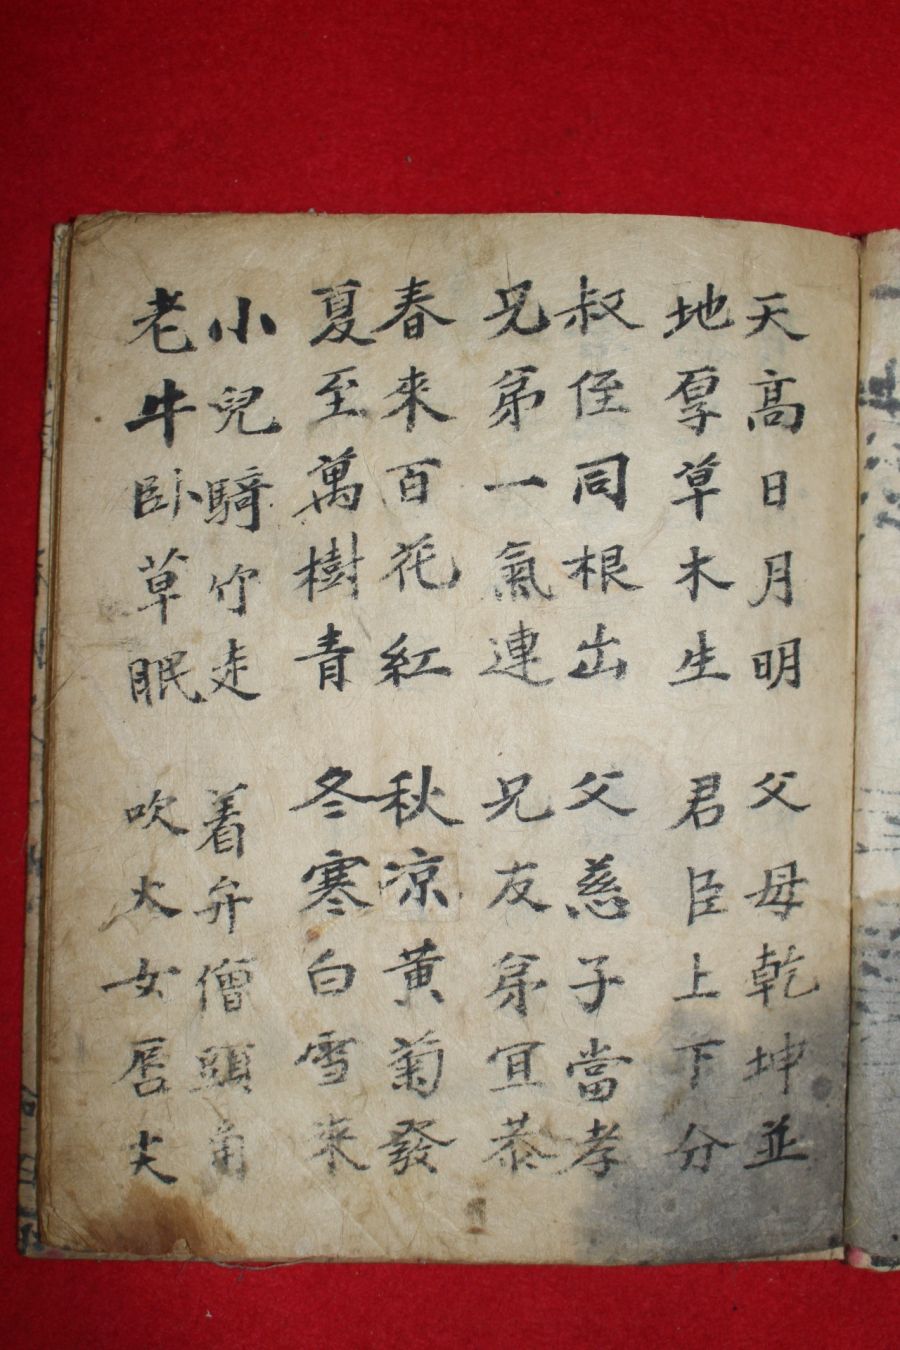 天高日月明 父母乾坤並
地厚草木生 君臣上下分
叔侄同根出 父慈子當孝
兄弟一氣連 兄友弟宜恭
春來百花紅 秋凉黃菊發
夏至萬樹青 冬寒白雪來
小兒騎竹走 着弁僧頭角
老牛卧草眠 吹火女唇尖